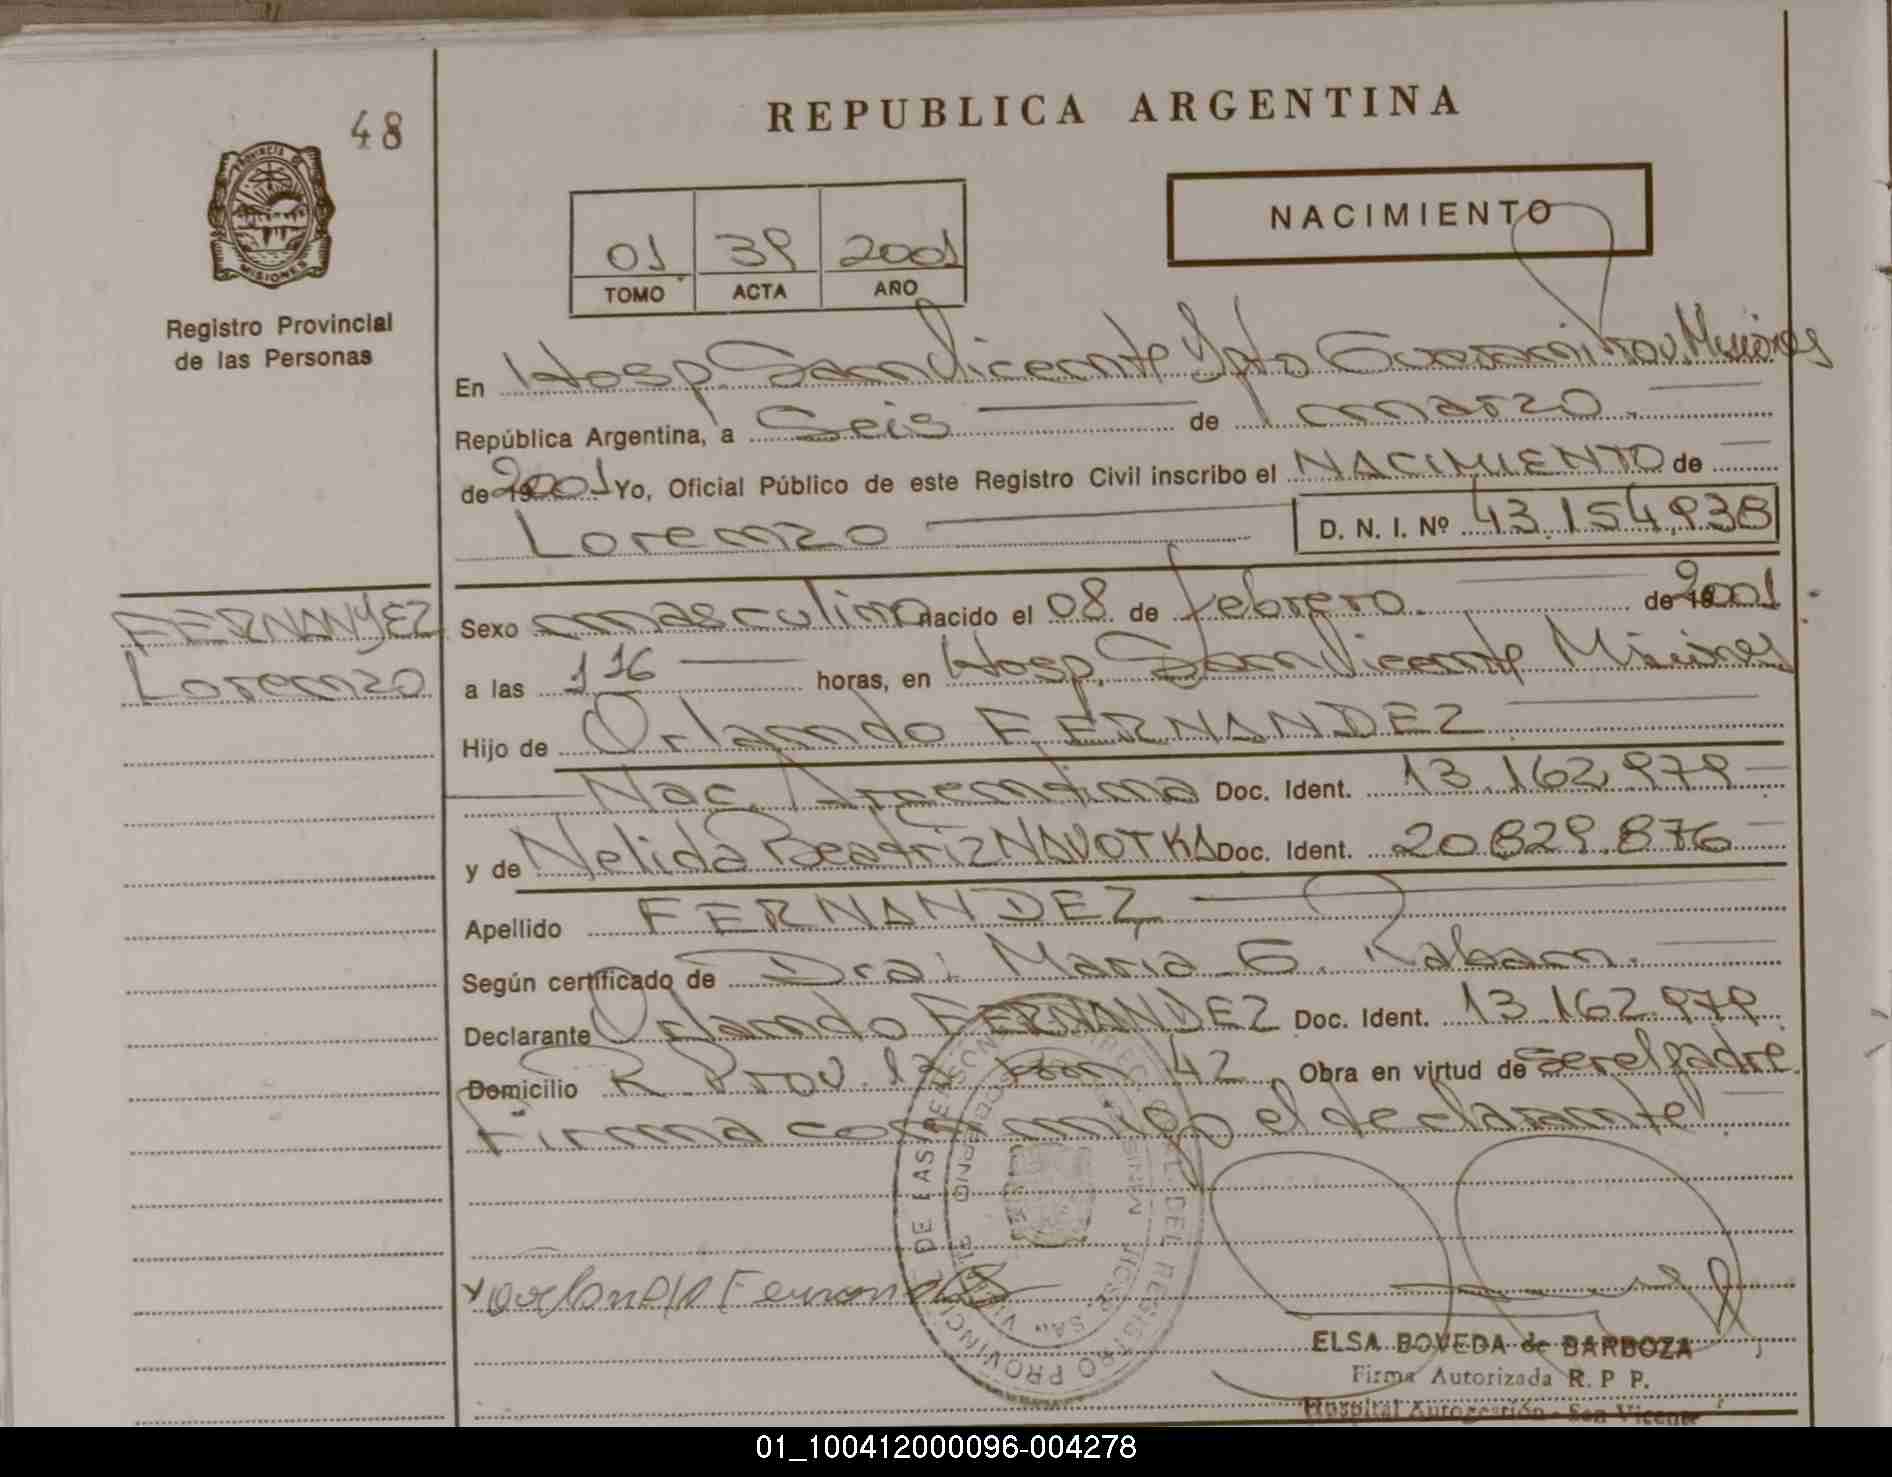 48
REPUBLICA ARGENTINA
PROVINCIA DE
MISIONES
Registro Provincial
de las Personas
NACIMIENTO
01 39 2001
TOMO ACTA AÑO
En Hosp. San Vicente Dpto Guarani Prov Misiones
República Argentina, a Seis de marzo
de 2001 Yo, Oficial Público de este Registro Civil inscribo el NACIMIENTO de
Lorenzo D. N. I. Nº 43.154.938
FERNANDEZ
Lorenzo
Sexo masculino nacido el 08 de febrero de 2001
a las 1 16 horas, en Hosp. San Vicente Misiones
Hijo de Orlando FERNANDEZ
Nac. Argentina Doc. Ident. 13.162.979
y de Nelida Beatriz NAVOTKA Doc. Ident. 20.829.876
Apellido FERNANDEZ
Según certificado de Dra: Maria G. Rabaan.
Declarante Orlando FERNANDEZ Doc. Ident. 13.162.979
Domicilio R Prov. 13 km 42 Obra en virtud de ser el padre
Firma conmigo el declarante
ELSA BOVEDA de BARBOZA
Firma Autorizada R. P P.
Hospital Autogestión - San Vicente
01_100412000096-004278